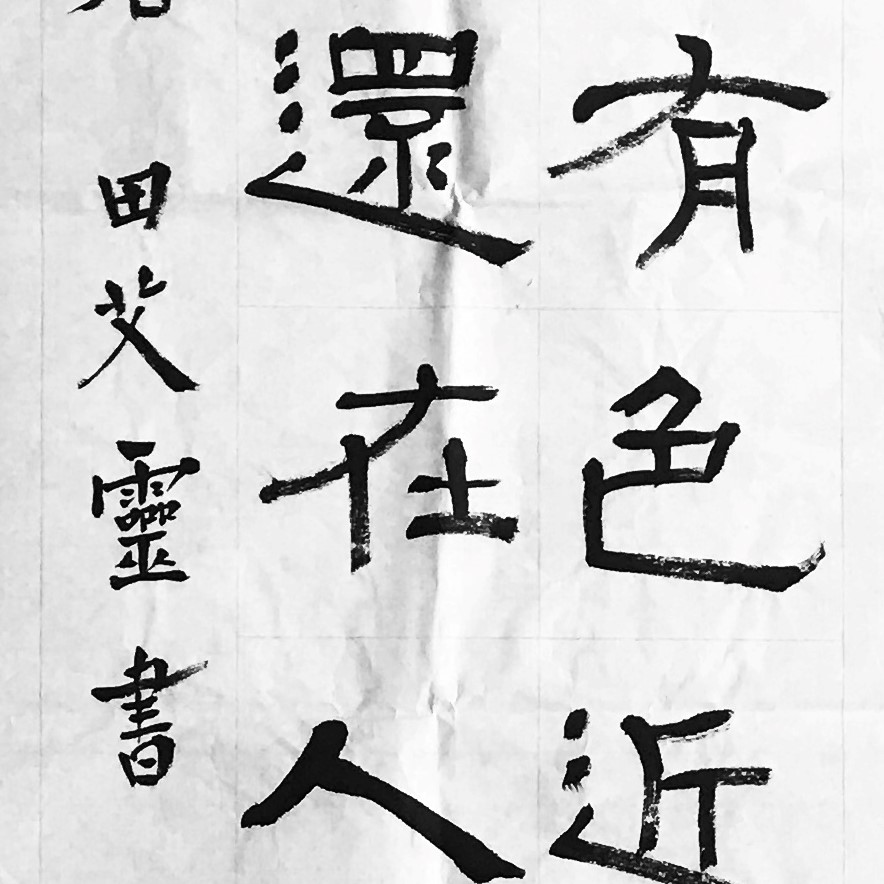 有色近
還在人
田艾靈書